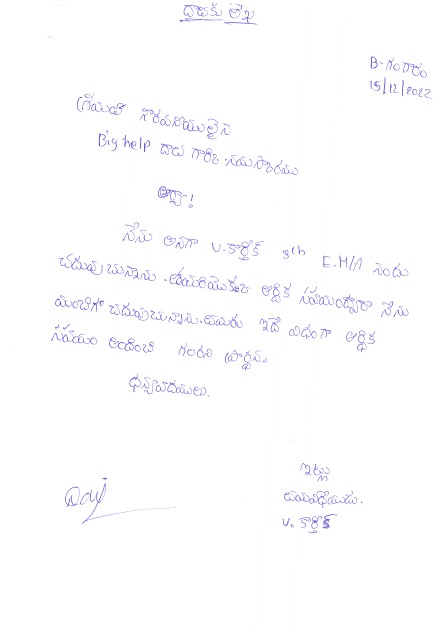 దాతకు లేఖ
B-గంగారం
15/12/2022
శ్రీమతి గౌరవనీయులైన
Big help దాత గారికి నమస్కారములు
ఆర్యా!
నేను అనగా V. కార్తీక్ 8th E.M/A నందు
చదువుచున్నాను. మీయొక్క ఆర్థిక సహాయంద్వారా నేను
మంచిగా చదువుచున్నాను. మీరు ఇదే విధంగా ఆర్థిక
సహాయం అందించ గలరని ప్రార్థన.
ధన్యవాదములు.
ఇట్లు
మీవిధేయుడు.
V. కార్తీక్